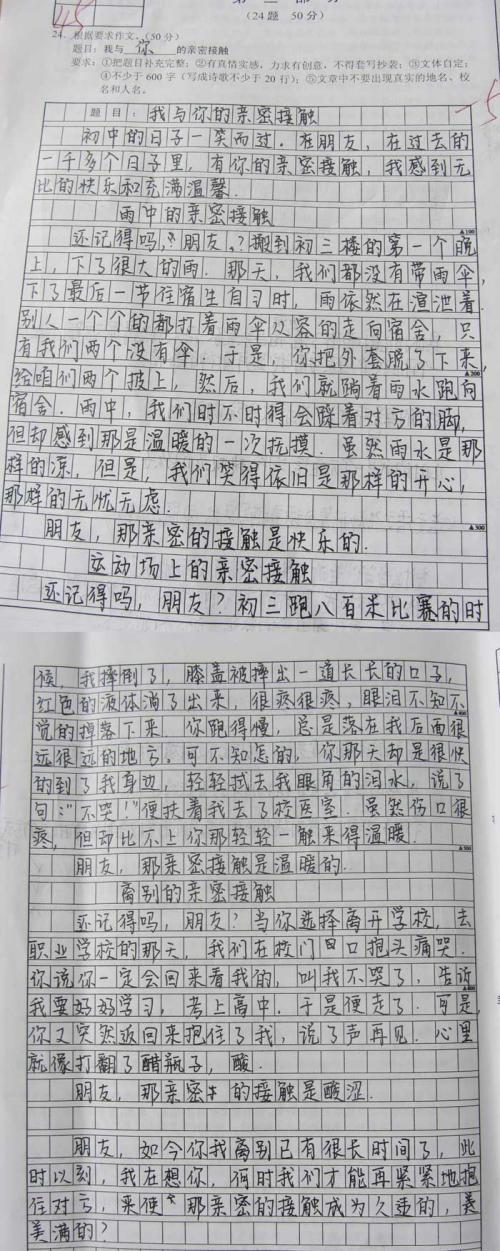 第二部分
(24题 50分)
45
24. 根据要求作文。(50分)
题目:我与 你 的亲密接触
要求:①把题目补充完整;②有真情实感,力求有创意,不得套写抄袭;③文体自定;
④不少于 600 字(写成诗歌不少于 20 行);⑤文章中不要出现真实的地名、校
名和人名。
-5
题目:我与你的亲密接触
初中的日子一笑而过.在朋友,在过去的
一千多个日子里,有你的亲密接触,我感到无
比的快乐和充满温馨.
雨中的亲密接触
▲100
还记得吗,“朋友,?搬到初三楼的第一个晚
上,下了很大的雨.那天,我们都没有带雨伞,
下了最后一节住宿生自习时,雨依然在渲泄着.
别人一个个的都打着雨伞从容的走向宿舍,只
有我们两个没有伞.于是,你把外套脱了下来,
▲200
给咱们两个披上,然后,我们就踏着雨水跑向
宿舍.雨中,我们时不时得会踩着对方的脚,
但却感到那是温暖的一次抚摸.虽然雨水是那
样的凉,但是,我们笑得依旧是那样的开心,
那样的无忧无虑.
▲300
朋友,那亲密的接触是快乐的.
运动场上的亲密接触
还记得吗,朋友?初三跑八百米比赛的时
候,我摔倒了,膝盖被摔出一道长长的口子,
红色的液体淌了出来,很疼很疼,眼泪不知不
▲400
觉的掉落下来.你跑得慢,总是落在我后面很
远很远的地方.可不知怎的,你那天却是很快
的到了我身边,轻轻拭去我眼角的泪水,说了
句:“不哭!”便扶着我去了校医室.虽然伤口很
疼,但却比不上你那轻轻一触来得温暖.
▲500
朋友,那亲密接触是温暖的.
离别的亲密接触
还记得吗,朋友?当你选择离开学校,去
职业学校的那天,我们在校门口抱头痛哭.
你说你一定会回来看我的,叫我不哭了,告诉
▲600
我要好好学习,考上高中.于是便走了.可是,
你又突然返回来抱住了我,说了声再见.心里
就像打翻了醋瓶子,酸.
朋友,那亲密的接触是酸涩.
朋友,如今你我离别已有很长时间了,此
时以刻,我在想你,何时我们才能再紧紧地抱
住对方,来使那亲密的接触成为久违的,美
美满的?